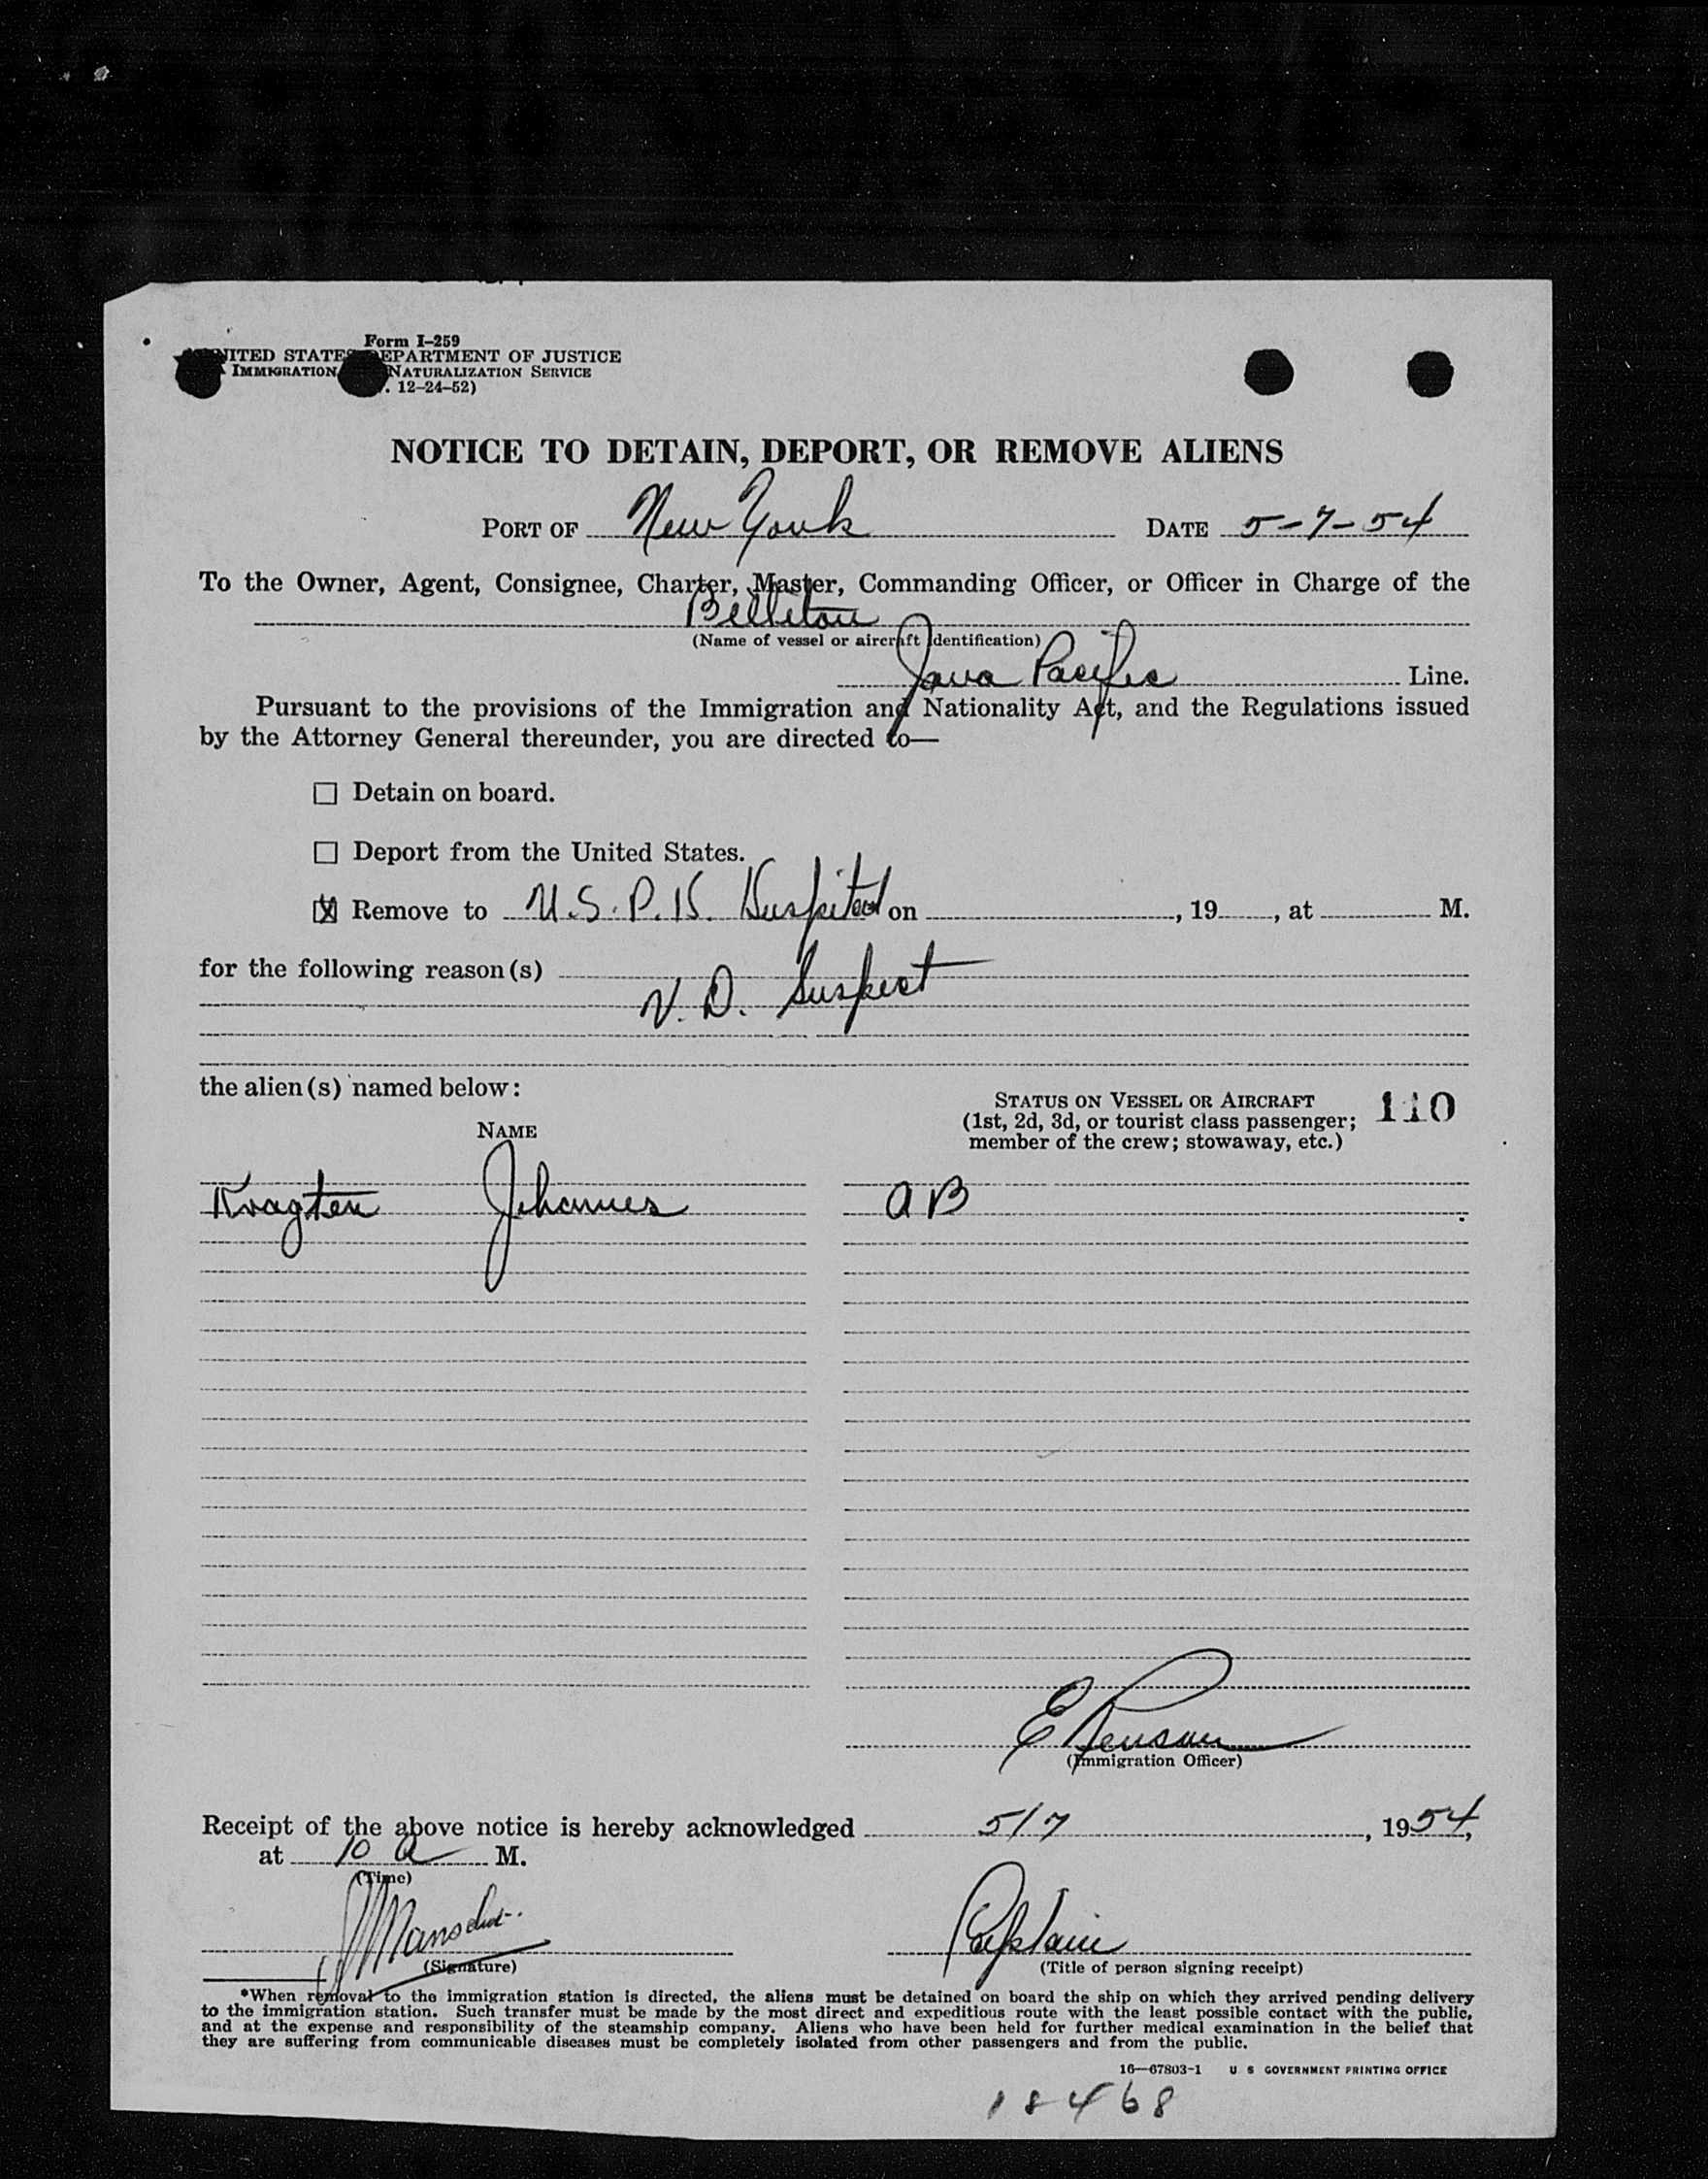 Form I-259
UNITED STATES DEPARTMENT OF JUSTICE
IMMIGRATION NATURALIZATION SERVICE
. 12-24-52)
NOTICE TO DETAIN, DEPORT, OR REMOVE ALIENS
PORT OF New York DATE 5-7-54
To the Owner, Agent, Consignee, Charter, Master, Commanding Officer, or Officer in Charge of the
Billiton
(Name of vessel or aircraft identification)
Java Pacific Line.
Pursuant to the provisions of the Immigration and Nationality Act, and the Regulations issued
by the Attorney General thereunder, you are directed to—
☐ Detain on board.
☐ Deport from the United States.
☒ Remove to U.S.P.H. Hospital on , 19 , at M.
for the following reason(s)
V.D. Suspect
the alien(s) named below:
STATUS ON VESSEL OR AIRCRAFT
(1st, 2d, 3d, or tourist class passenger;
member of the crew; stowaway, etc.)
110
NAME
Kragten Johannes AB
(Immigration Officer)
Receipt of the above notice is hereby acknowledged 5/7, 1954,
at 10 a M.
(Time)
Captain
(Signature) (Title of person signing receipt)
*When removal to the immigration station is directed, the aliens must be detained on board the ship on which they arrived pending delivery
to the immigration station. Such transfer must be made by the most direct and expeditious route with the least possible contact with the public,
and at the expense and responsibility of the steamship company. Aliens who have been held for further medical examination in the belief that
they are suffering from communicable diseases must be completely isolated from other passengers and from the public.
16—67803-1 U S GOVERNMENT PRINTING OFFICE
18468